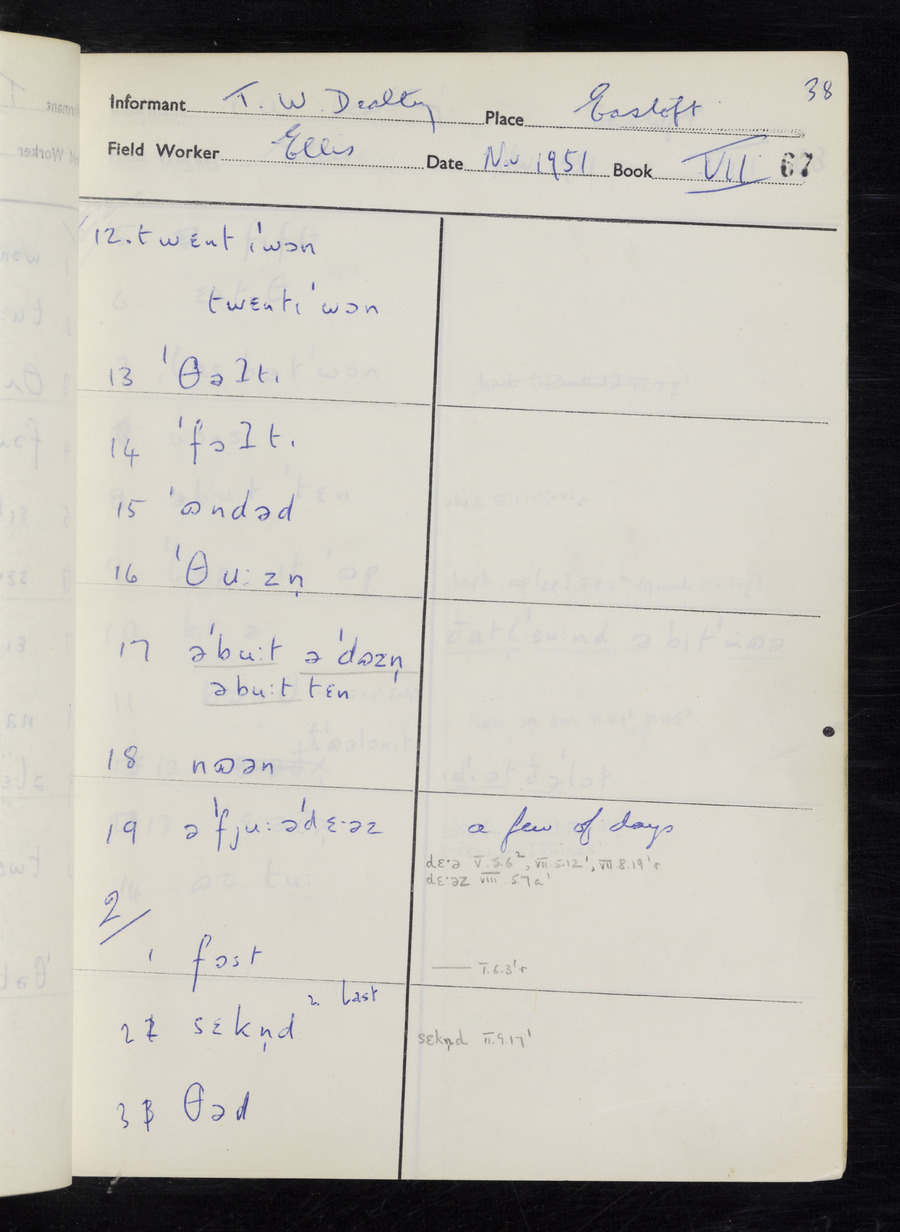 38
Informant T. W. Dealtry Place Eastoft
Field Worker Ellis Date Nov 1951 Book VII 67
12. twɛntɩˈwɔn
twɛntɩˈwɔn
13 ˈθəʅtɩ
14 ˈfɔʅtɩ
15 ˈɷndəd
16 ˈθu:zn̩
17 əˈbu:t əˈdɷzn̩
əbu:t tɛn
18 nɷən
19 əˈfju: əˈdɛ·əz a few of days
dɛ·ə V.5.6², VII.5.12¹, VII.8.19¹r
dɛ·əz VIII.5.7a¹
2/
1 fɔst
I.6.3¹r
2 sɛkn̩d ² last
sɛkn̩d II.9.17¹
3 θəd